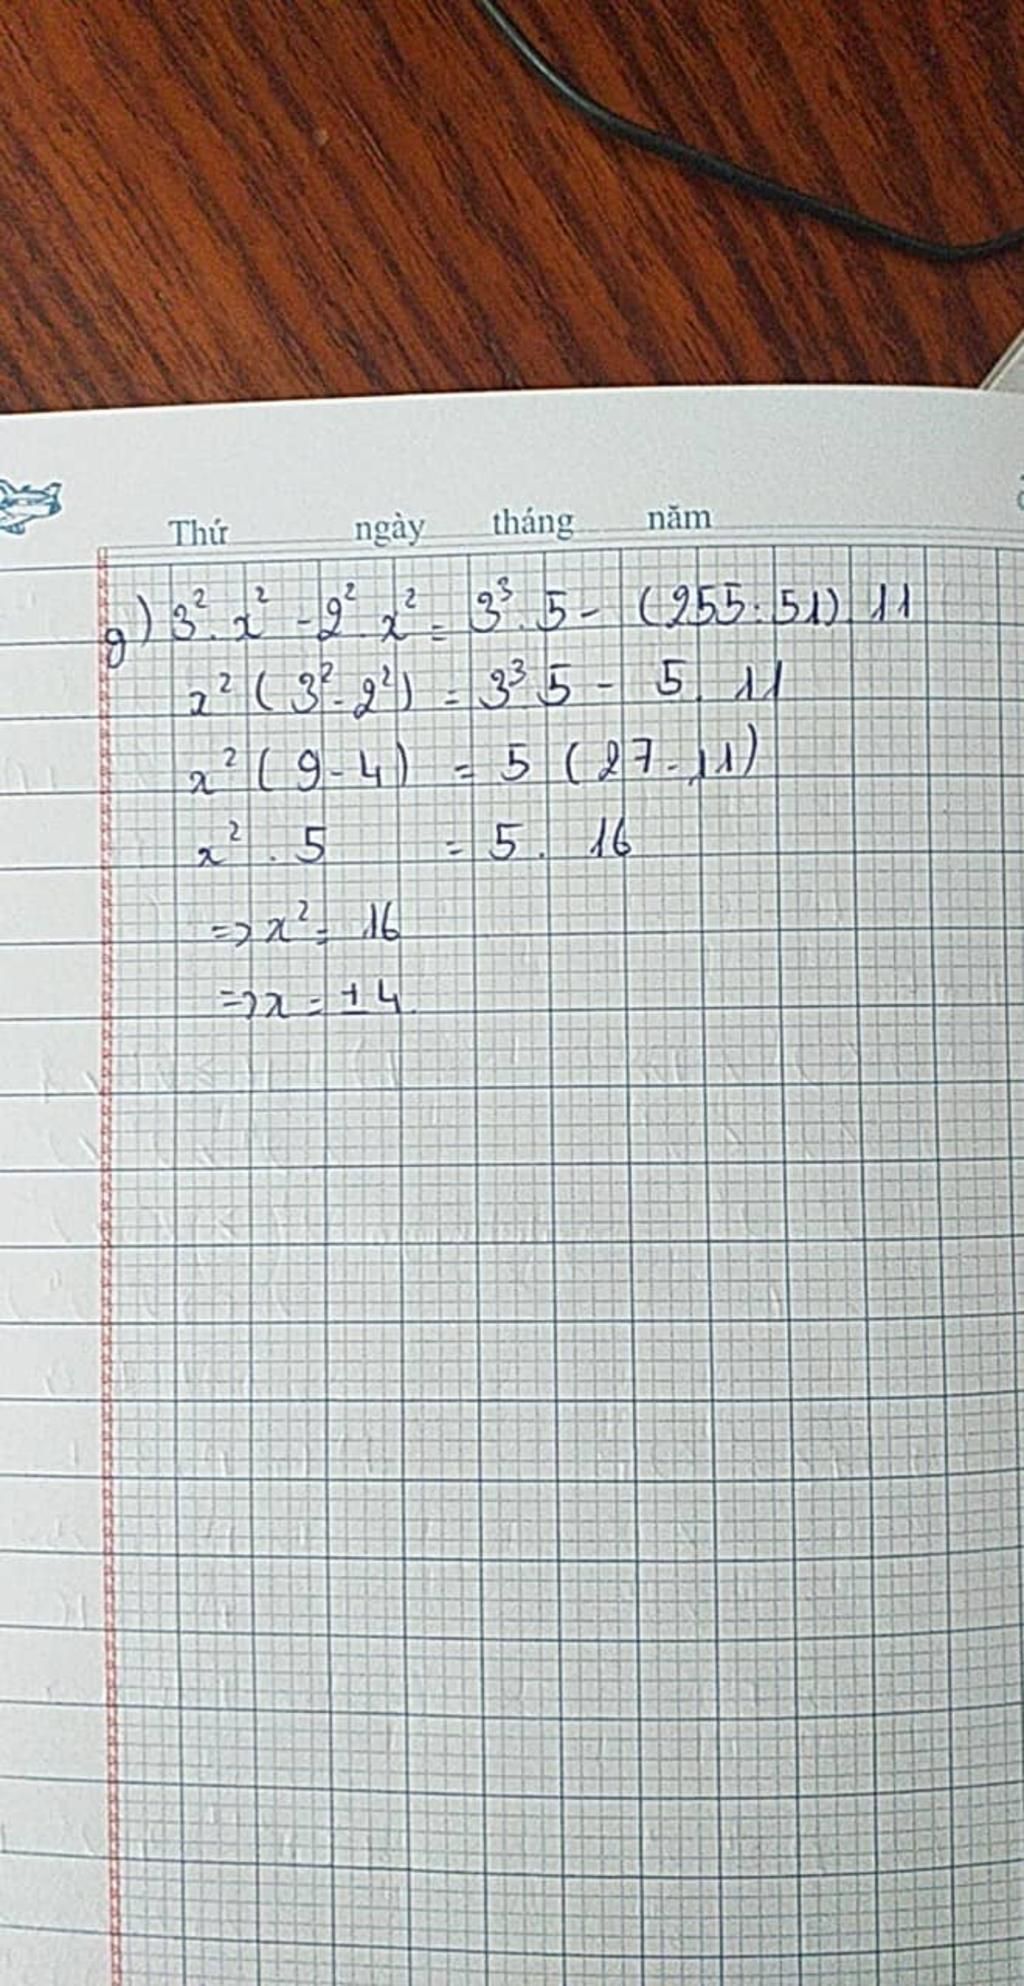 Thứ ngày tháng năm
g) 3². x² - 2². x² = 3³. 5 - (255:51) 11
x² (3² - 2²) = 3³ 5 - 5. 11
x² (9 - 4) = 5 (27 - 11)
x² . 5 = 5. 16
=> x² = 16
=> x = ± 4.